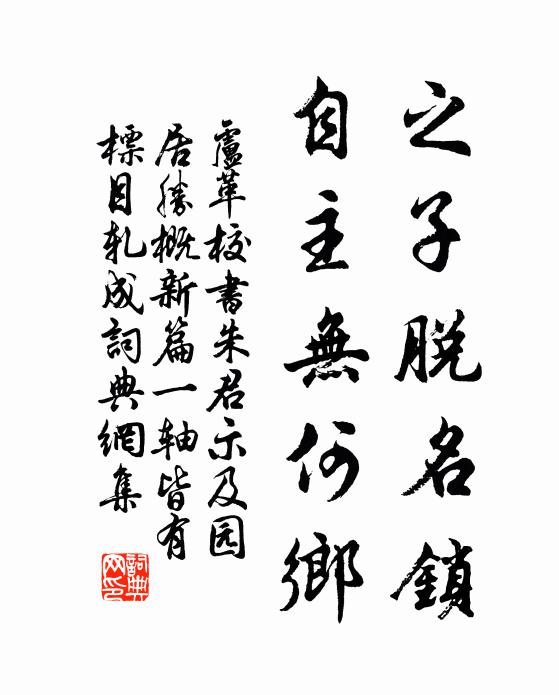 之子脱名鎖
自主無何鄉
盧革校書朱君示及园
居勝概新篇一軸皆有
標目軋成詞典網集
詞典
网印